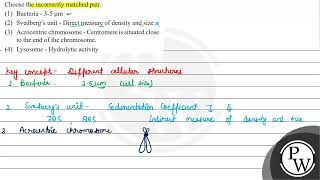 Choose the incorrectly matched pair.
(1) Bacteria - 3-5 μm
(2) Svedberg's unit - Direct measure of density and size
(3) Acrocentric chromosome - Centromere is situated close
to the end of the chromosome.
(4) Lysosome - Hydrolytic activity
Key concept - Different cellular structures
1. Bacteria 3-5 μm (cell size)
2. Svedberg's unit - Sedimentation Coefficient
70S, 80S Indirect measure of density and size
3. Acrocentric chromosome
PW